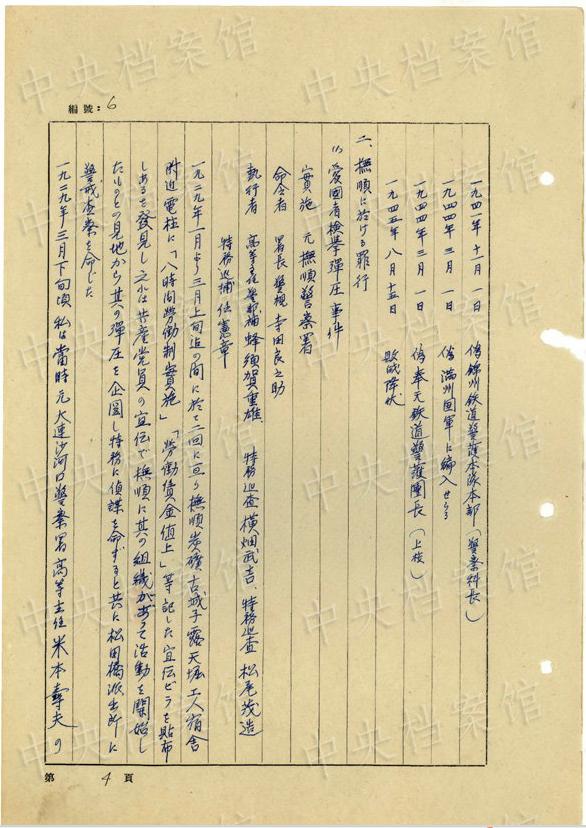 編號：6
一九四一年十一月一日　偽錦州鉄道警護本隊本部（警察科長）
一九四四年三月一日　偽満州国軍に編入せらる
一九四四年三月一日　偽奉天鉄道警護團長（上校）
一九四五年八月十五日　敗戦降伏
二、撫順に於ける罪行
(1)愛国者検挙弾圧事件
實施　元撫順警察署
命令者　署長警視　寺田良之助
執行者　高等主任警部補　蜂須賀重雄、特務巡査　横畑武吉、特務巡査　松尾茂造
特務巡捕　任憲章
一九二九年一月から三月上旬迄の間に於て二回に亘り撫順炭礦古城子露天堀工人宿舎
附近電柱に「八時間勞働制實施」「勞働賃金値上」等記した宣伝ビラを貼布
しあるを發見し之れは共産党員の宣伝で撫順に其の組織があつて活動を開始し
たものとの見地から其の弾圧を企図し特務に偵諜を命ずると共に松田橋派出所に
警戒査察を命じた
一九二九年三月下旬頃私は當時元大連沙河口警察署高等主任米本壽夫の
第 4 頁
中央档案馆